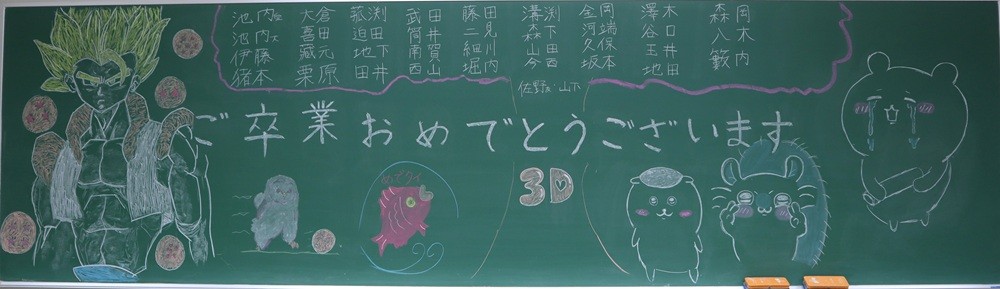 池内佐 大倉 菰渕 武田 藤田 溝渕 金岡 澤木 森岡
池内大 喜田 迫田 筒井 二見 森下 河端 谷口 八木
伊藤 藏元 地下 甫賀 細川 山田 久保 玉井 籔内
猪本 栗原 田井 西山 堀内 今西 坂本 地田
佐野 山下
ご卒業おめでとうございます
めでタイ
3D